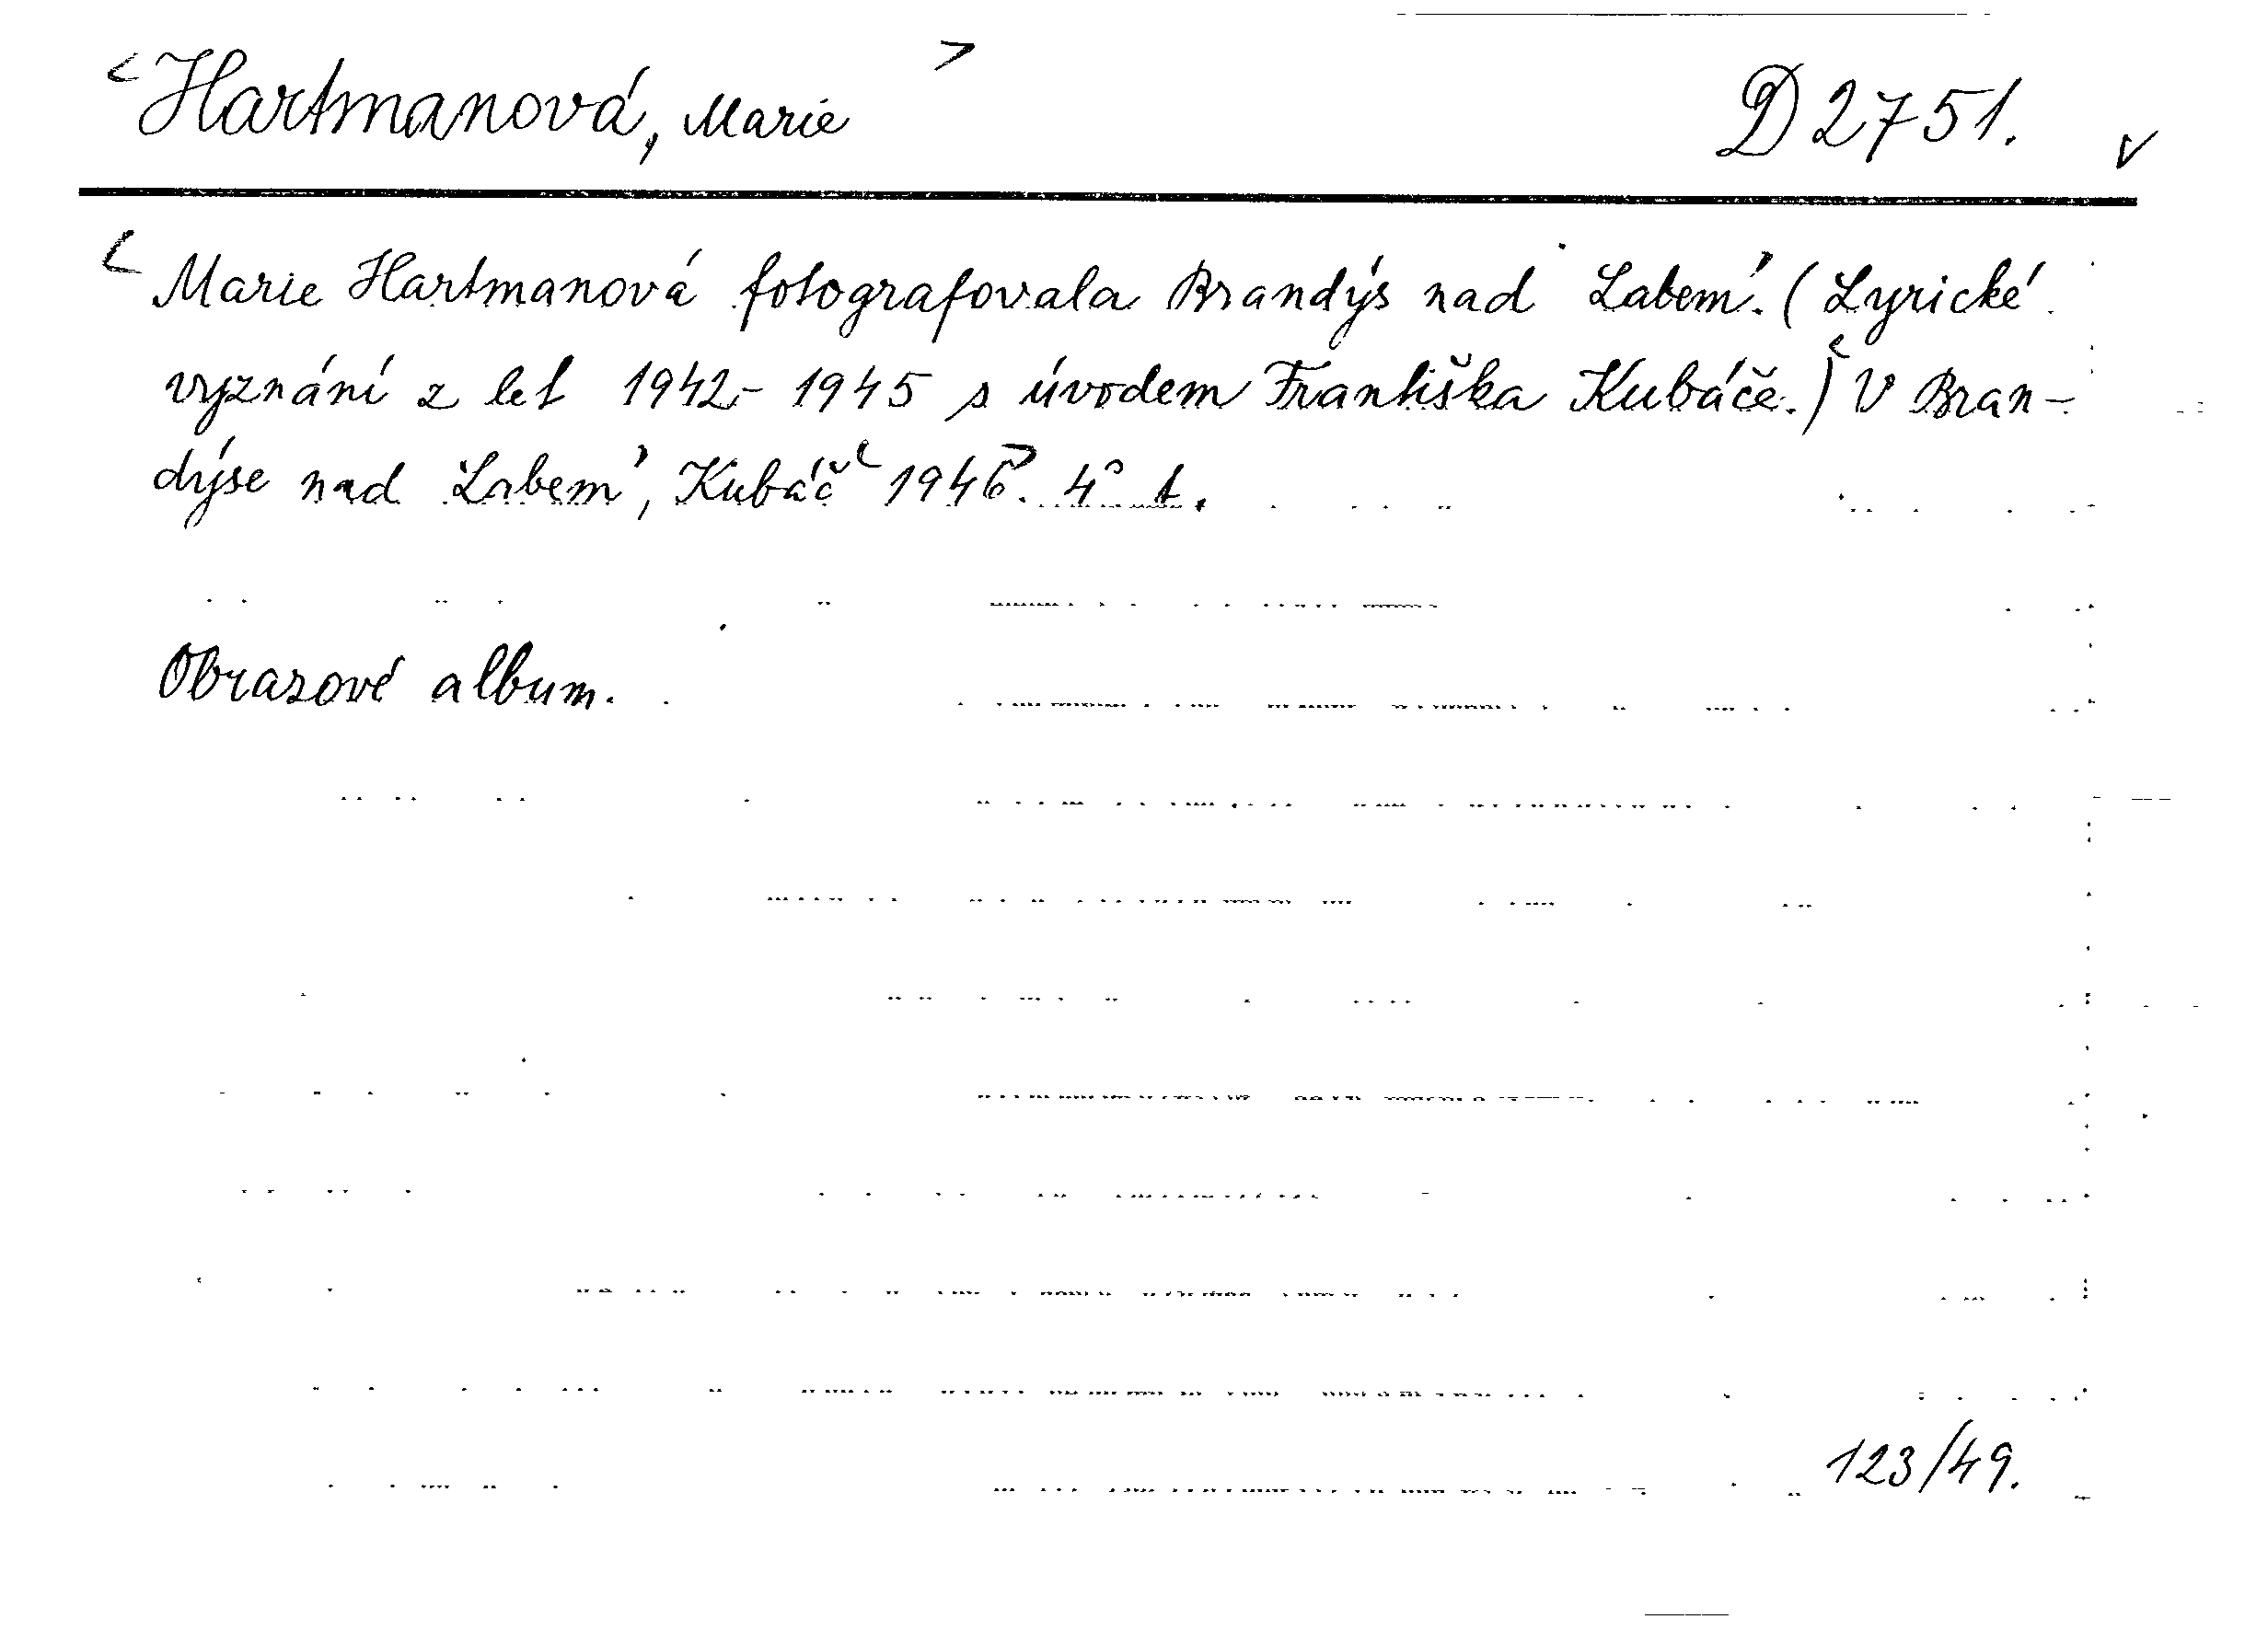 Hartmanová, Marie D 2751.
Marie Hartmanová fotografovala Brandýs nad Labem. (Lyrické
vyznání z let 1942-1945 s úvodem Františka Kubáče.) V Bran-
dýse nad Labem, Kubáč 1946. 4° t.
Obrazové album.
123/49.